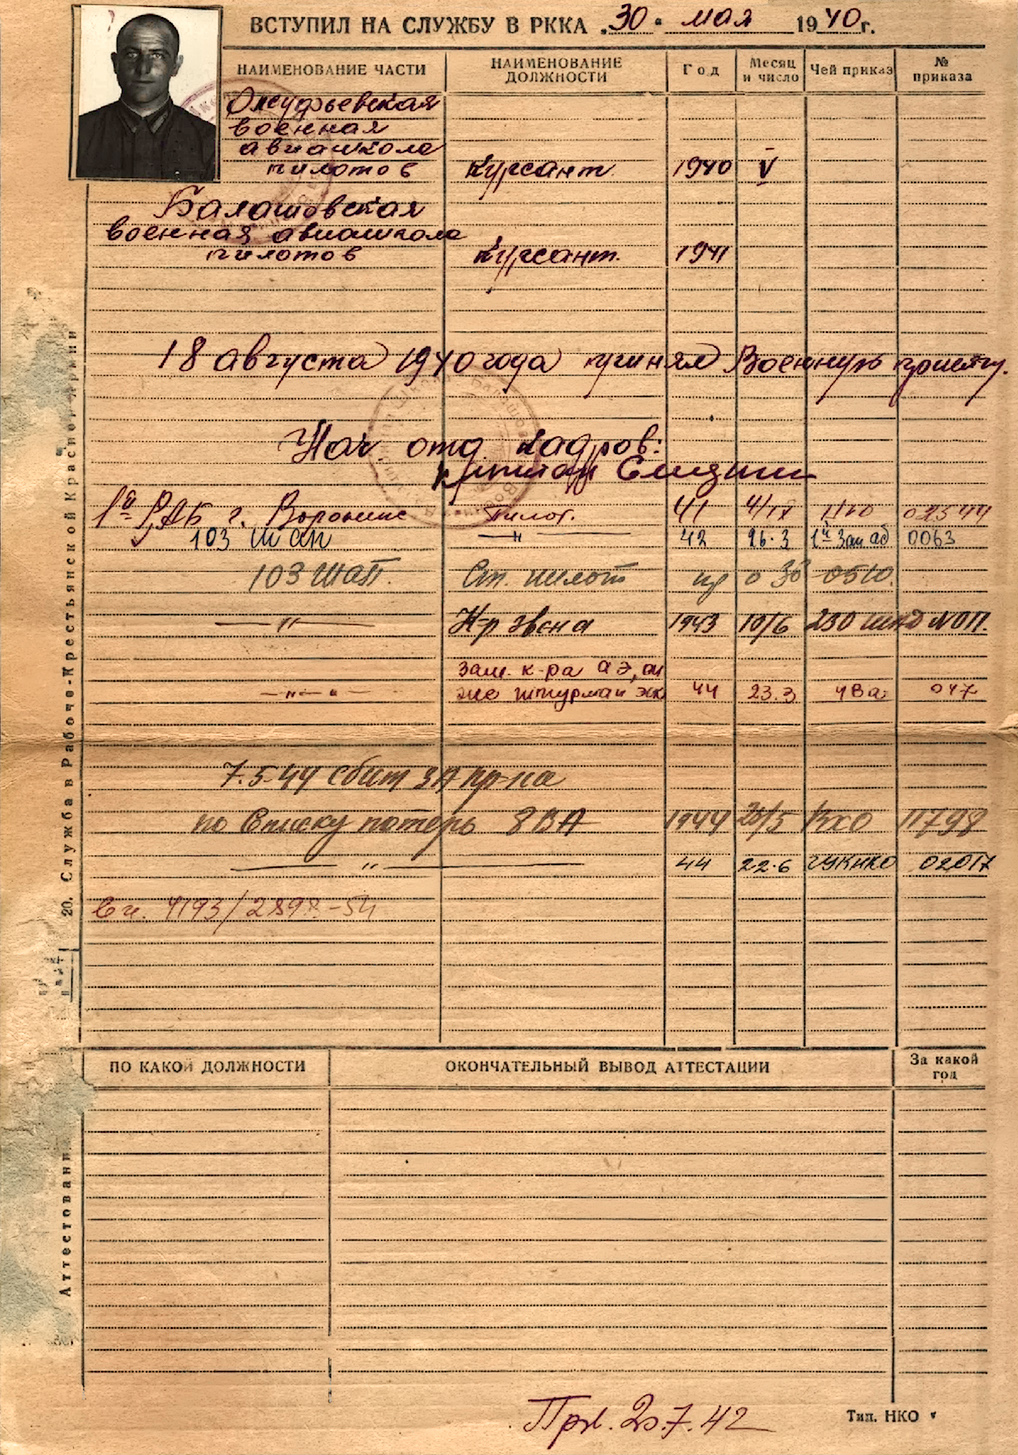 ВСТУПИЛ НА СЛУЖБУ В РККА „30" мая 1940г.
НАИМЕНОВАНИЕ ЧАСТИ
НАИМЕНОВАНИЕ ДОЛЖНОСТИ
Год
Месяц и число
Чей приказ
№ приказа
военная
авиашкола
пилотов Курсант 1940 V
Балашовская
военная авиашкола
пилотов Курсант. 1941
18 августа 1940 года принял Военную присягу.
Нач. отд. кадров:
капитан
1я РАБ г. Воронеж Пилот. 41
103 шап —"— 42 26.3 1й Зап аб 0063
103 ШАП. Ст. пилот 0510.
—"— К-р звена 1943 10/6 230
зам. к-ра аэ, он
—"— же штурман эск 44 23.3 4Ва 047
7.5.44 сбит ЗА пр-ка
по Списку потерь 8ВА 1944 11798
—"— 44 22.6 ГУКНКО 02017
20. Служба в Рабоче-Крестьянской Красной Армии
ПО КАКОЙ ДОЛЖНОСТИ
ОКОНЧАТЕЛЬНЫЙ ВЫВОД АТТЕСТАЦИИ
За какой год
Аттестован
20.7.42
Тип. НКО